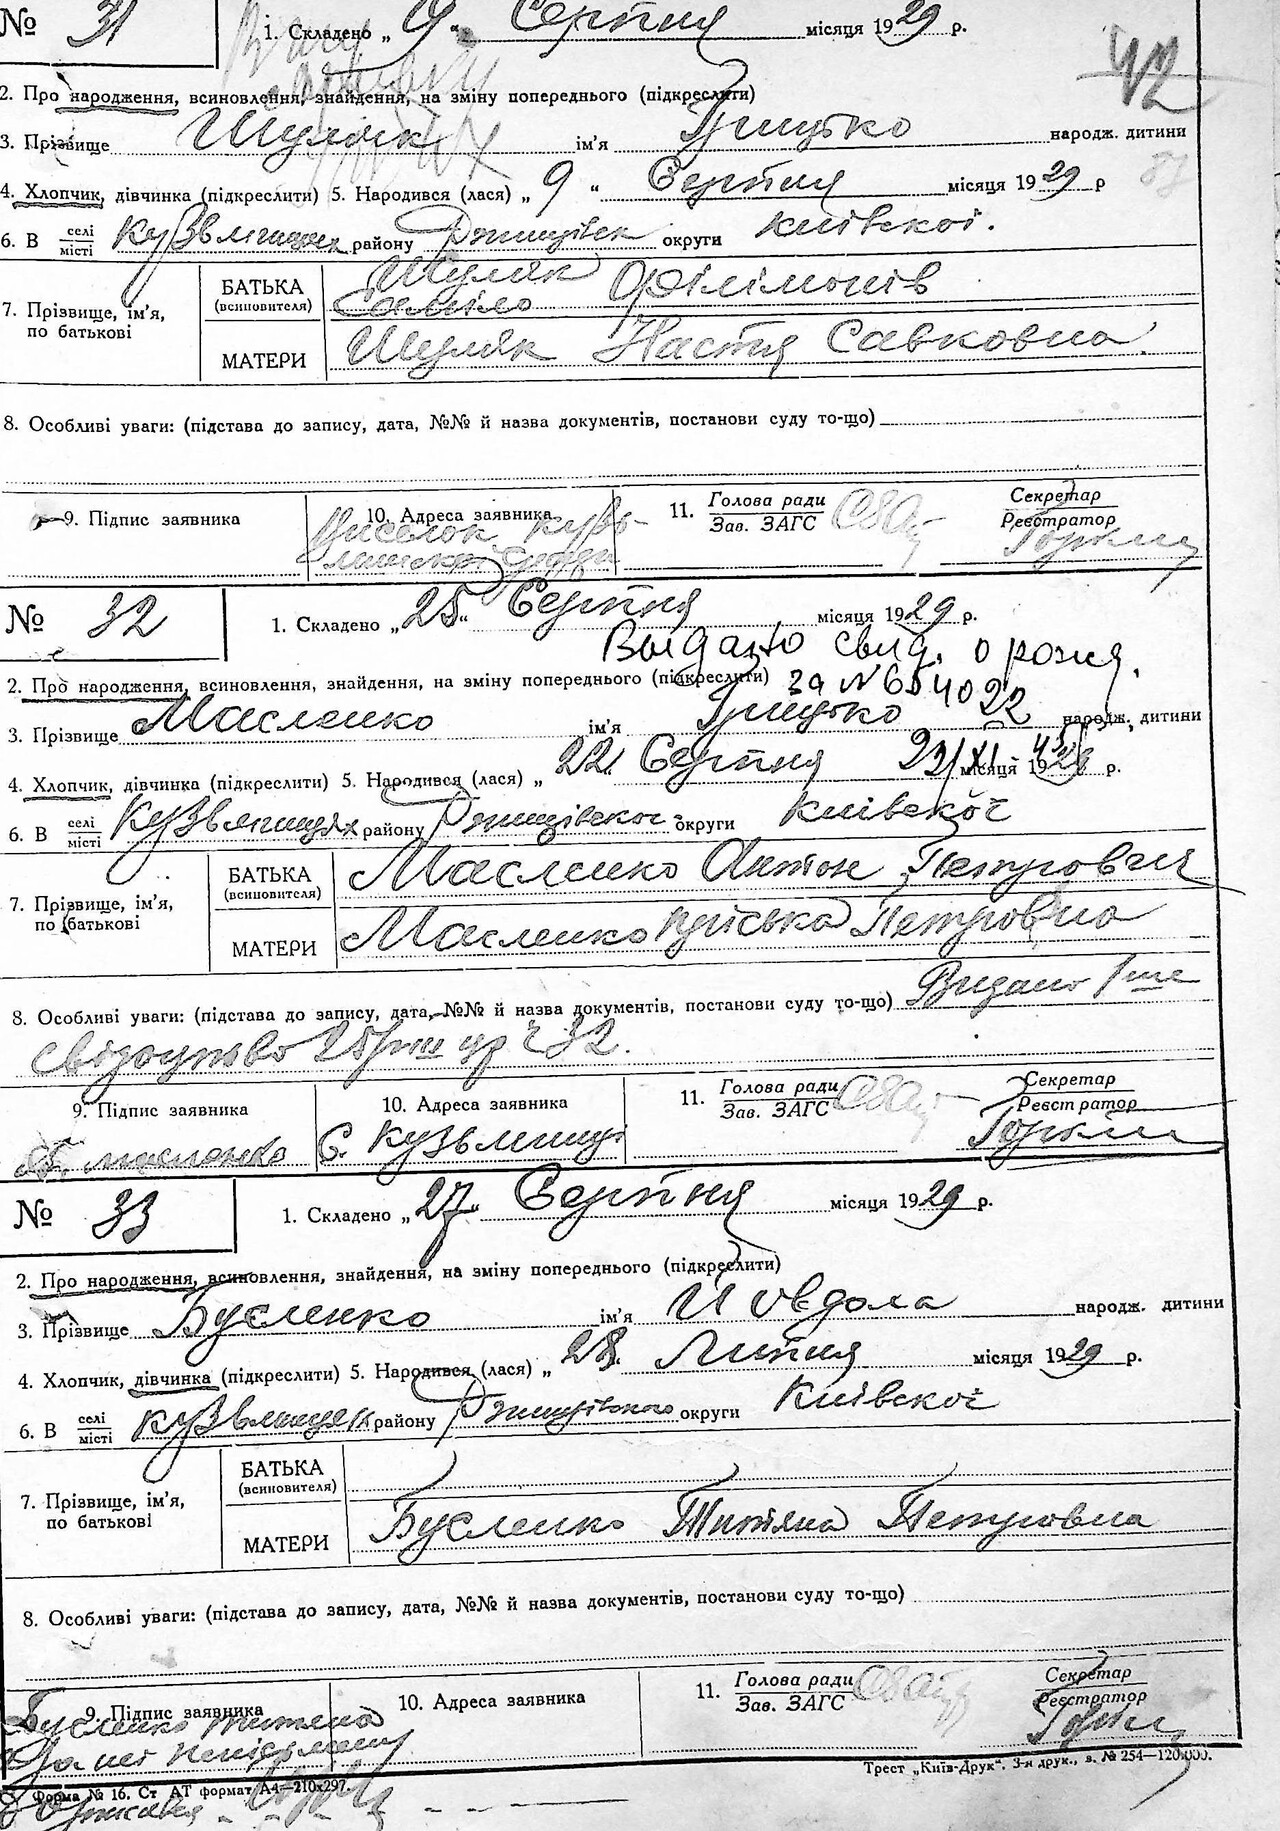 № 31 1. Складено „ 9 “ Серпня місяця 1929 р.
42
2. Про народження, всиновлення, знайдення, на зміну попереднього (підкреслити)
3. Прізвище Шуляк ім'я Грицько народж. дитини
4. Хлопчик, дівчинка (підкреслити) 5. Народився (лася) „ 9 “ Серпня місяця 1929 р
6. В селі/місті Кузьминцях району Ржищівськ округи Київскої.
7. Прізвище, ім'я, по батькові
БАТЬКА (всиновителя) Шуляк Філімонів
МАТЕРИ Шуляк Настя Савковна
8. Особливі уваги: (підстава до запису, дата, №№ й назва документів, постанови суду то-що)
9. Підпис заявника
10. Адреса заявника
11. Голова ради / Зав. ЗАГС
Секретар / Реєстратор
№ 32 1. Складено „ 25 “ Серпня місяця 1929 р.
Выдано свид. о рожд.
2. Про народження, всиновлення, знайдення, на зміну попереднього (підкреслити) за №
3. Прізвище Масленко ім'я Грицько народж. дитини
4. Хлопчик, дівчинка (підкреслити) 5. Народився (лася) „ 22 “ Серпня місяця 1929 р.
6. В селі/місті Кузьминцях району Ржищівскої округи Київскої
7. Прізвище, ім'я, по батькові
БАТЬКА (всиновителя) Масленко Антон Петрович
МАТЕРИ Масленко Пріська Петровна
8. Особливі уваги: (підстава до запису, дата, №№ й назва документів, постанови суду то-що) Видано
32.
9. Підпис заявника Масленко
10. Адреса заявника с. Кузьминці
11. Голова ради / Зав. ЗАГС
Секретар / Реєстратор
№ 33 1. Складено „ 27 “ Серпня місяця 1929 р.
2. Про народження, всиновлення, знайдення, на зміну попереднього (підкреслити)
3. Прізвище Бусленко ім'я Йовдола народж. дитини
4. Хлопчик, дівчинка (підкреслити) 5. Народився (лася) „ 28 “ Липня місяця 1929 р.
6. В селі/місті Кузьминцях району Ржищівского округи Київскої
7. Прізвище, ім'я, по батькові
БАТЬКА (всиновителя)
МАТЕРИ Бусленко Титяна Петровна
8. Особливі уваги: (підстава до запису, дата, №№ й назва документів, постанови суду то-що)
9. Підпис заявника
Бусленко Титяна
10. Адреса заявника
11. Голова ради / Зав. ЗАГС
Секретар / Реєстратор
Трест „Київ-Друк“. 3-я друк., з. № 254—120.000.
Форма № 16. Ст АТ формат А4—210х297.